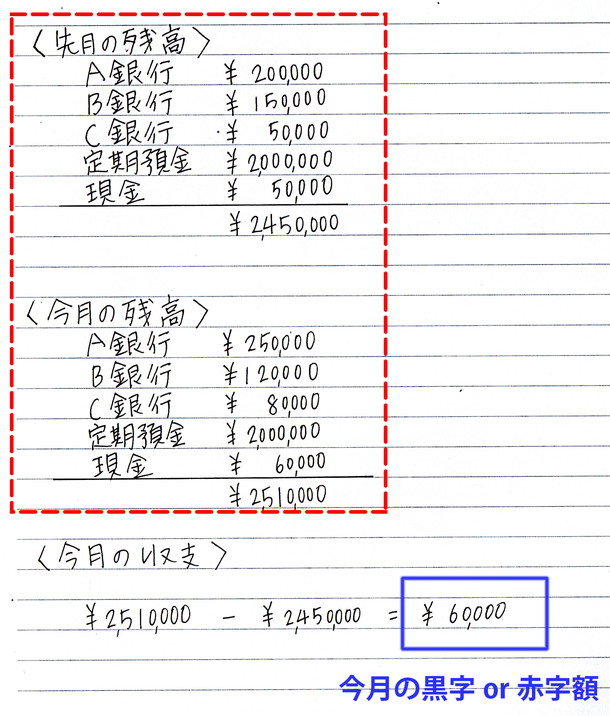 〈先月の残高〉
A銀行 ¥200,000
B銀行 ¥150,000
C銀行 ¥50,000
定期預金 ¥2,000,000
現金 ¥50,000
¥2,450,000
〈今月の残高〉
A銀行 ¥250,000
B銀行 ¥120,000
C銀行 ¥80,000
定期預金 ¥2,000,000
現金 ¥60,000
¥2,510,000
〈今月の収支〉
¥2,510,000 - ¥2,450,000 = ¥60,000
今月の黒字 or 赤字額